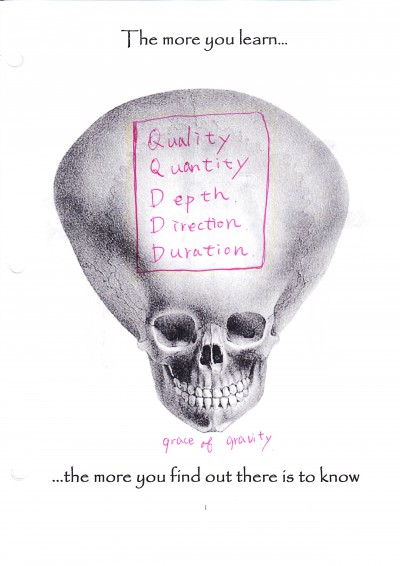 The more you learn...
Quality
Quantity
Depth.
Direction.
Duration.
grace of gravity
...the more you find out there is to know
1